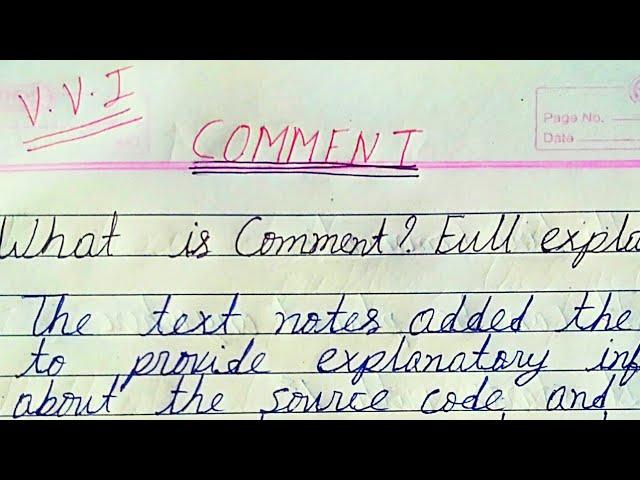 V.V.I
Page No.
Date
COMMENT
What is Comment? Full expla
The text notes added the
to provide explanatory inf
about the source code and